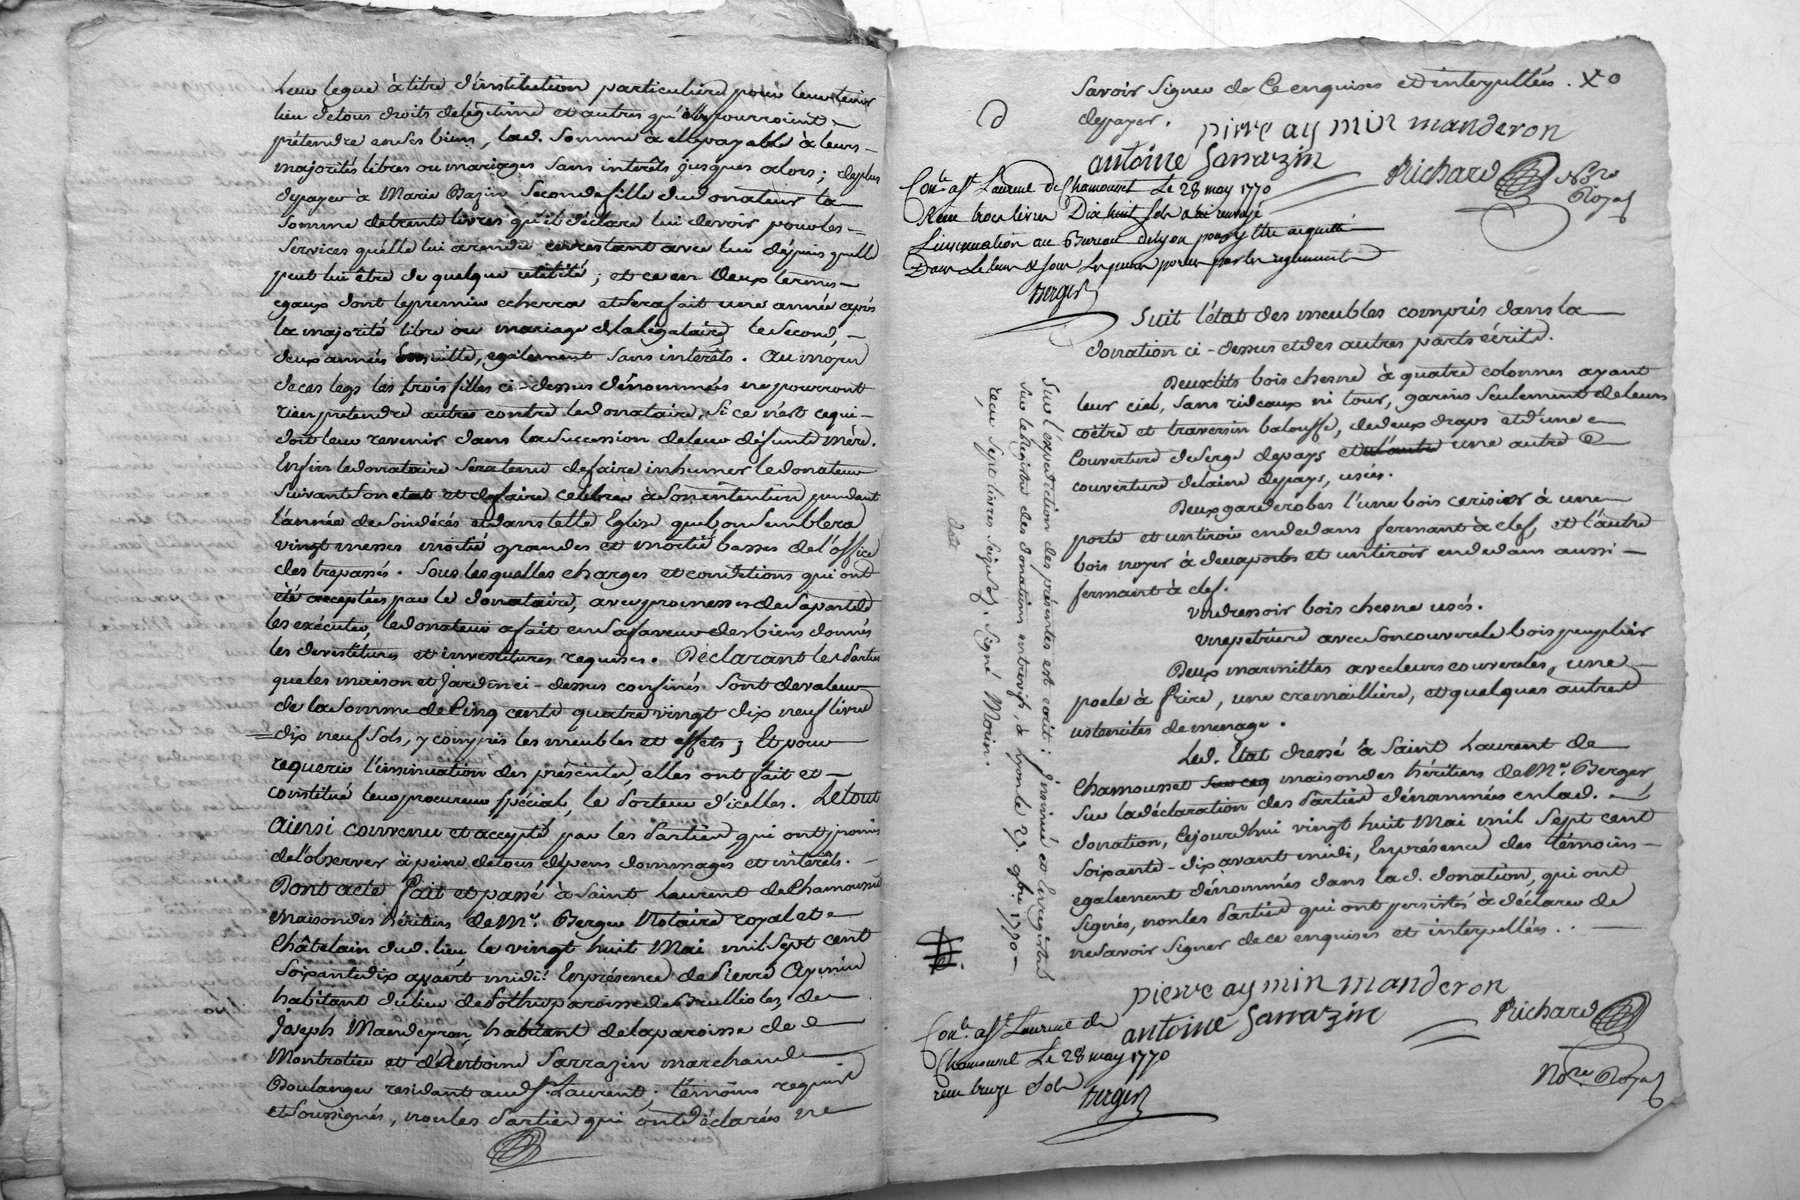 Leur legue à titre d'institution particuliere pour leur tenir
lieu de tous droits de légitime et autres qu'elles pourroient
prétendre en ses biens, lad. somme à elle payable à leurs
majorités libres ou mariages sans intérêts jusques alors; de plus
de payer à Marie Bazin seconde fille du donateur la
somme de trente livres qu'il déclare lui devoir pour les
services qu'elle lui a rendu en restant avec lui depuis qu'elle
peut lui être de quelque utilité; et ce en deux termes
egaux dont le premier echerra et sera fait une année après
la majorité libre ou mariage de la légataire, le second,
deux années ensuitte, egalement sans interêts. Au moyen
de ces legs les trois filles ci-dessus dénommées ne pourront
rien pretendre autres contre le donataire, si ce n'est ce qui
doit leur revenir dans la succession de leur défunte mère.
Enfin le donataire sera tenu de faire inhumer le donateur
suivant son etat et de faire célébrer à son intention pendant
l'année de son décés et dans telle Eglise que bon semblera
vingt messes moitié grandes et moitié basses de l'office
des trepassés. Sous lesquelles charges et conditions qui ont
été acceptées par le donataire, avec promesses de sa part de
les exécuter, le donateur a fait en sa faveur des biens donnés
les devestitures et investitures requises. Déclarant les Parties
que les maison et Jardin ci-dessus confinés sont de valeur
de la somme de Cinq cents quatre vingt dix neuf livres
dix neuf sols, y compris les meubles et effets; Et pour
requerir l'insinuation des présentes, elles ont fait et
constitué leur procureur spécial, le Porteur d'icelles. Le tout
Ainsi convenu et accepté par les Parties qui ont promis
de l'observer à peine de tous dépens dommages et intérêts.
Dont acte Fait et passé à Saint Laurent de Chamousset
maison des héritiers de Mr. Berger Notaire royal et
Châtelain dud. lieu, le vingt huit Mai mil sept cent
soixante dix avant midi. En présence de Pierre Aymin
habitant du lieu de paroisse de Brullioles, de
Joseph Manderon, habitant de la paroisse de
Montrotier et d'Antoine Sarrazin marchand
Boulanger residant aud. St. Laurent; témoins requis
et soussignés, non les Parties qui ont déclarées ne
savoir signer de Ce enquises et interpellées.
de payer.
pierre aymin manderon
antoine Sarrazin Richard Nore
Royal
Conle. a St. Laurent de Chamousset Le 28 may 1770
Reçu trois livres Dix huit sols a renvoyé
L'insinuation au Bureau de Lyon pour y être acquitté
Dans le tems & sous les peines portées par les reglements
Berger
Suit l'état des meubles compris dans la
donation ci-dessus et des autres parts écrite.
Deux lits bois chesne à quatre colonnes ayant
leur ciel, sans rideaux ni tour, garnis seulement de leurs
coëtre et traversin balouffe, de deux draps et d'une
Couverture de serge de pays et l'autre une autre
couverture de laine de pays, usés.
Deux garderobes l'une bois cerisier à une
porte et un tiroir en dedans fermant à clef, et l'autre
bois noyer à deux portes et un tiroir en dedans aussi
fermant à clef.
Un dressoir bois chesne usé.
Une petriere avec son couvercle bois peuplier
Deux marmittes avec leurs couvercles, une
poele à frire, une cremailliere, et quelques autres
ustenciles de menage.
Led. Etat dressé à Saint Laurent de
Chamousset maison des héritiers de Mr. Berger
sur la déclaration des Parties dénommées en lad.
donation, Cejourdhui vingt huit Mai mil sept cent
soixante-dix avant midi, En présence des témoins
egalement dénommés dans lad. donation, qui ont
signés, non les Parties qui ont persistés à déclarer de
ne savoir signer de ce enquises et interpellées.
pierre aymin manderon
antoine Sarrazin Richard
Nore. Royal
Conle. a St. Laurent de
Chamousset Le 28 may 1770
reçu treize sols Berger
Sur l'expediction des présentes est écrit: Insinué et Enregistré
sur le Registre des donations entrevifs, à Lyon le 23. 9bre 1770
reçu sept livres seize sols. Signé Morin.